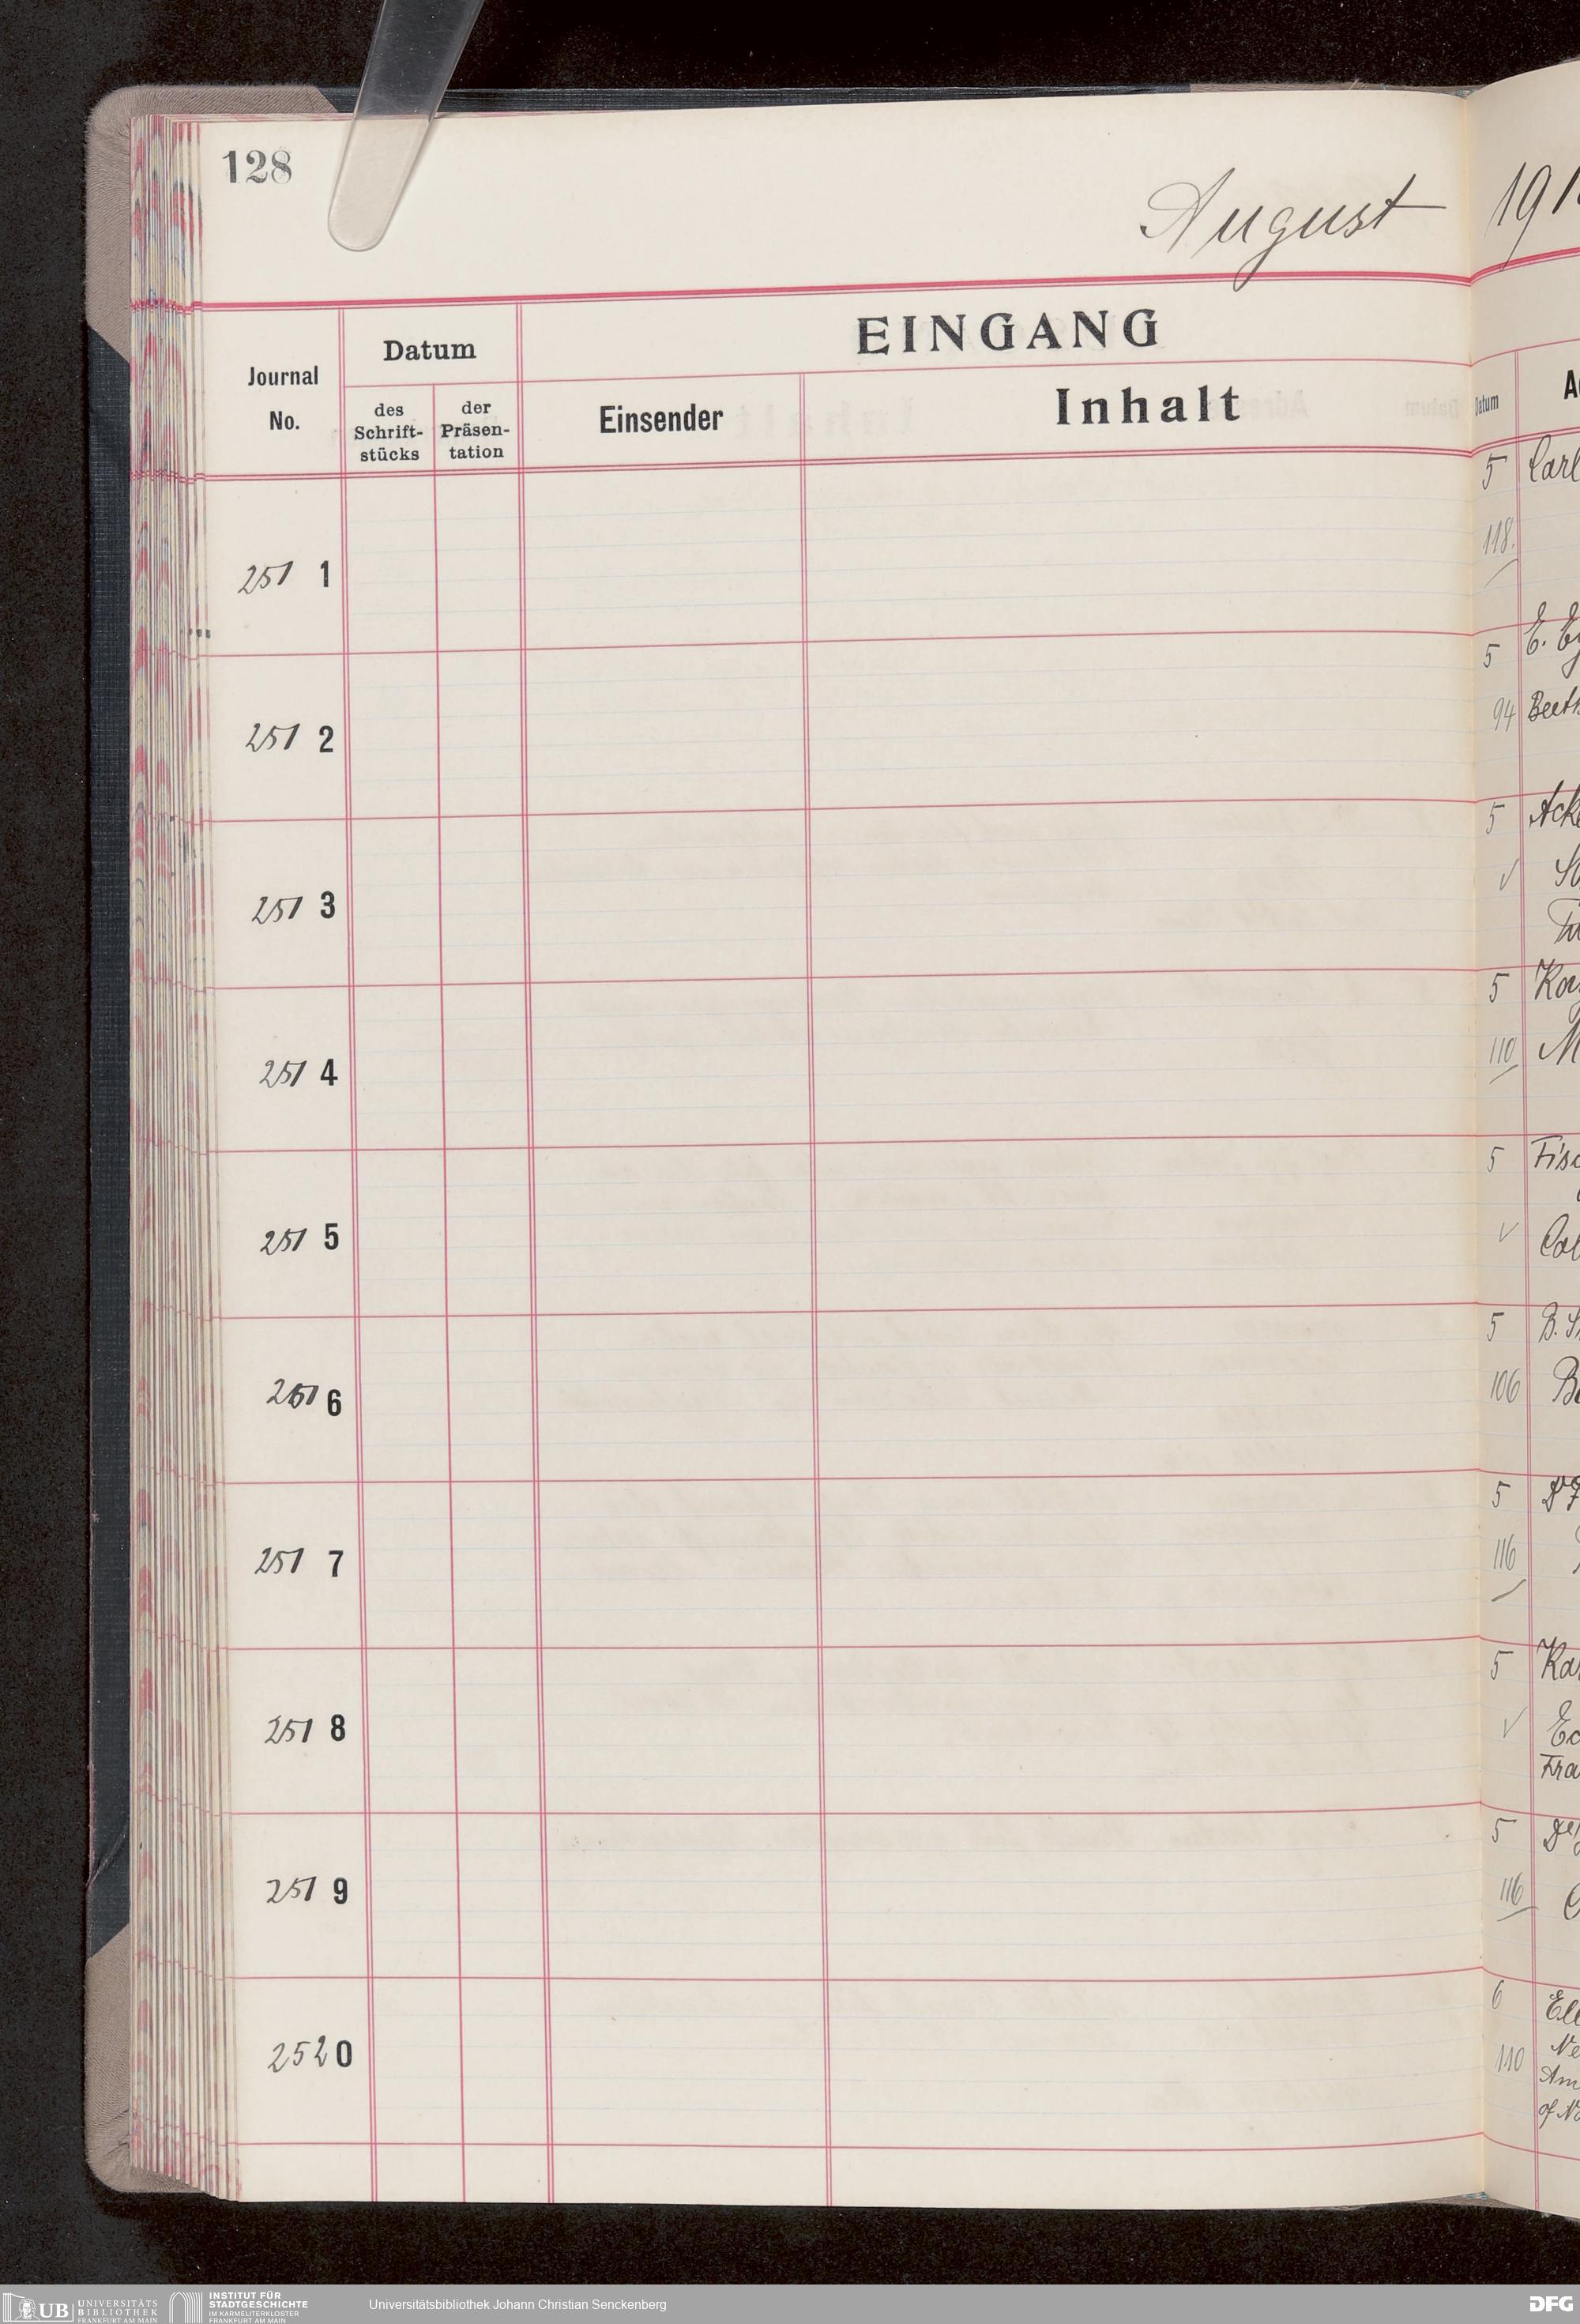 128
August 191
EINGANG
Journal No.
Datum
des Schrift-stücks
der Präsen-tation
Einsender
Inhalt
Datum
251 1
251 2
251 3
251 4
251 5
251 6
251 7
251 8
251 9
252 0
5 Carl
118.
5
94
5
5
110
5
5
106
5
116
5
5
116
6
110
UB UNIVERSITÄTS BIBLIOTHEK FRANKFURT AM MAIN
INSTITUT FÜR STADTGESCHICHTE IM KARMELITERKLOSTER FRANKFURT AM MAIN
Universitätsbibliothek Johann Christian Senckenberg
DFG